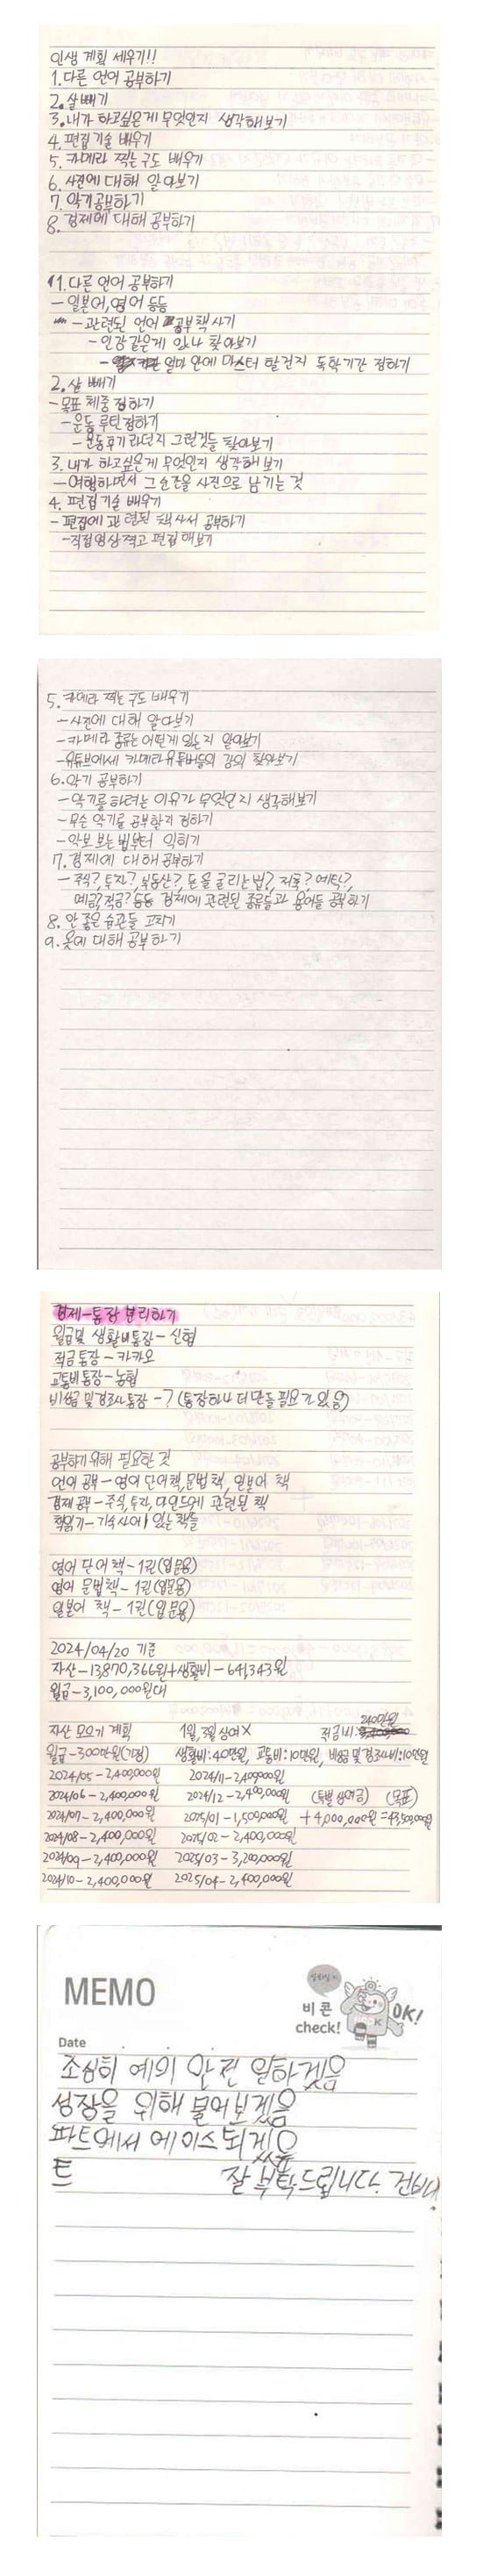 인생 계획 세우기!!
1.다른 언어 공부하기
2.살빼기
3.내가 하고싶은게 무엇인지 생각해보기
4.편집기술 배우기
5.카메라 찍는 구도 배우기
6.사진에 대해 알아보기
7.악기공부하기
8.경제에 대해 공부하기
1.다른 언어 공부하기
-일본어,영어 등등
-관련된 언어 공부책 사기
-인강같은게 있나 찾아보기
-얼마 안에 마스터 할건지 독학기간 정하기
2.살 빼기
-목표 체중 정하기
-운동 루틴정하기
-운동후기라던지 그런것들 찾아보기
3.내가 하고싶은게 무엇인지 생각해보기
-여행하면서 그 순간을 사진으로 남기는 것
4.편집기술 배우기
-편집에 관련된 책사서 공부하기
-직접영상찍고 편집해보기
5.카메라 찍는 구도 배우기
-사진에 대해 알아보기
-카메라 종류는 어떤게 있는지 알아보기
-유튜브에서 카메라유튜버들의 강의 찾아보기
6.악기 공부하기
-악기를 하려는 이유가 무엇인지 생각해보기
-무슨 악기를 공부할지 정하기
-악보 보는법부터 익히기
7.경제에 대해 공부하기
-주식?,투자?,부동산?,돈을 굴리는법?,저축?,예탁?,
예금?,적금? 등등 경제에 관련된 종류들과 용어들 공부하기
8.안 좋은 습관들 고치기
9.옷에 대해 공부하기
경제-통장 분리하기
월급및 생활비통장-신협
적금통장-카카오
교통비통장-농협
비상금 및 경조사통장-? (통장하나 더 만들 필요가 있음)
공부하기 위해 필요한 것
언어 공부-영어 단어책,문법책,일본어 책
경제공부-주식,투자,마인드에 관련된 책
책읽기-기숙사에 있는책들
영어 단어책-1권(입문용)
영어 문법책-1권(입문용)
일본어 책-1권(입문용)
2024/04/20 기준
자산-13,870,366원+생활비-641,343원
월급-3,100,000원대
자산 모으기 계획 1월,3월 상여X 적금비: 240만원
월급-300만원(가정) 생활비:40만원, 교통비:10만원, 비상금 및 경조사비:10만원
2024/05-2,400,000원 2024/11-2,400,000원
2024/06-2,400,000원 2024/12-2,400,000원 (특별상여금) (목표)
2024/07-2,400,000원 2025/01-1,500,000원 +4,000,000원=43,500,000원
2024/08-2,400,000원 2025/02-2,400,000원
2024/09-2,400,000원 2025/03-3,200,000원
2024/10-2,400,000원 2025/04-2,400,000원
MEMO
비콘
check!
OK!
Date
조심히 예의 안전 일하겠음
성장을 위해 물어보겠음
파트에서 에이스 되겠음
트 잘 부탁드립니다.